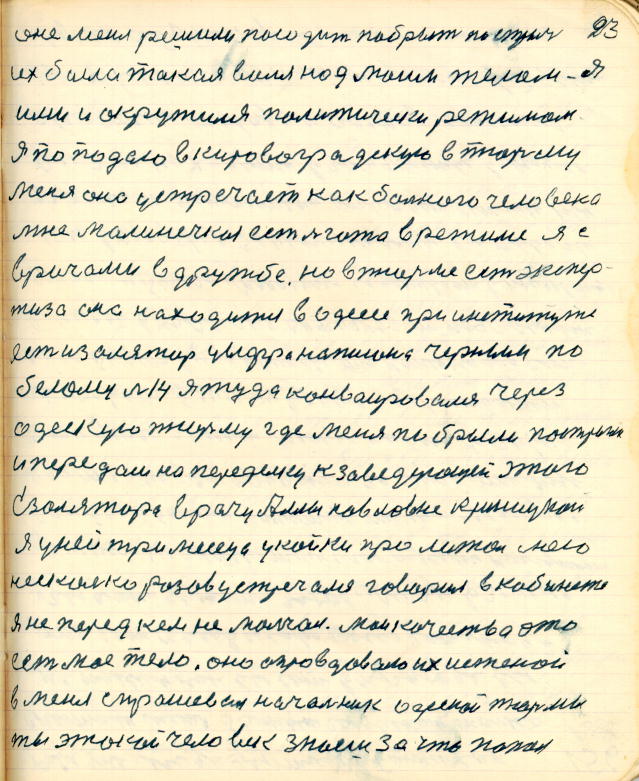 23
оне меня решили посодит побрыт пострыч
их была такая воля над моим телом – я
ими и окружился политически режимом.
Я попадаю в кировоградскую в тюрму
меня оно устречает как болного человека
мне малинечкая ест лгота в режиме я с
вричами в дружбе. но в тюрме ест экспер-
тиза она находится в одесе при институте
ест изолятор цыфра написона черным по
белому N 14 я туда конваировался через
одескую тюрму где меня побрыли постригли
и передали на переделку к заведующей этого
изолятора врачу Аллы повловне
я у ней три месеца у койки про лежал
несколко розов устречался говорил в кобинете
я не перед кем не молчал. мои качества это
ест мое тело. оно опровдовало их истеной
в меня спрошевал началник одеской тюрмы
ты этокой человек знаеш за что попал